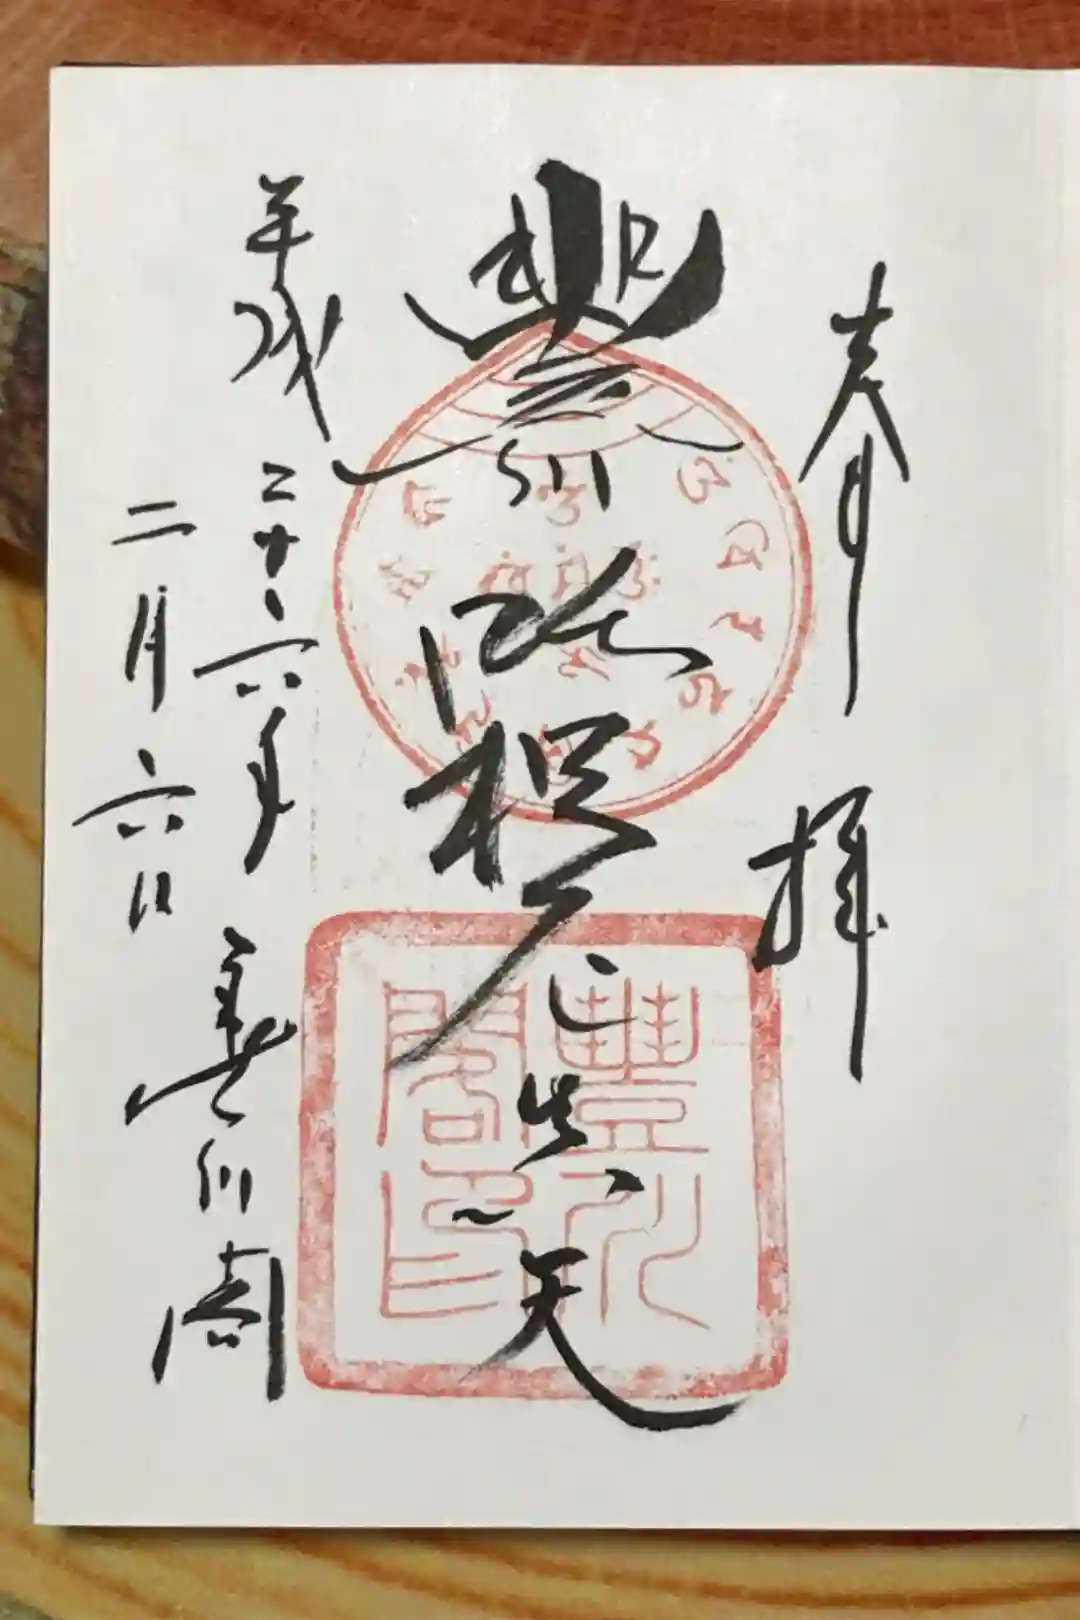 奉拝
豐川吒枳尼眞天
平成二十六年
二月六日
豐川閣
豐川閣印